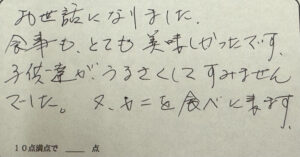 お世話になりました.
食事も、とても美味しかったです.
子供達が、うるさくしてすみません
でした。 又、カニを食べに来ます.
10点満点で ＿＿ 点